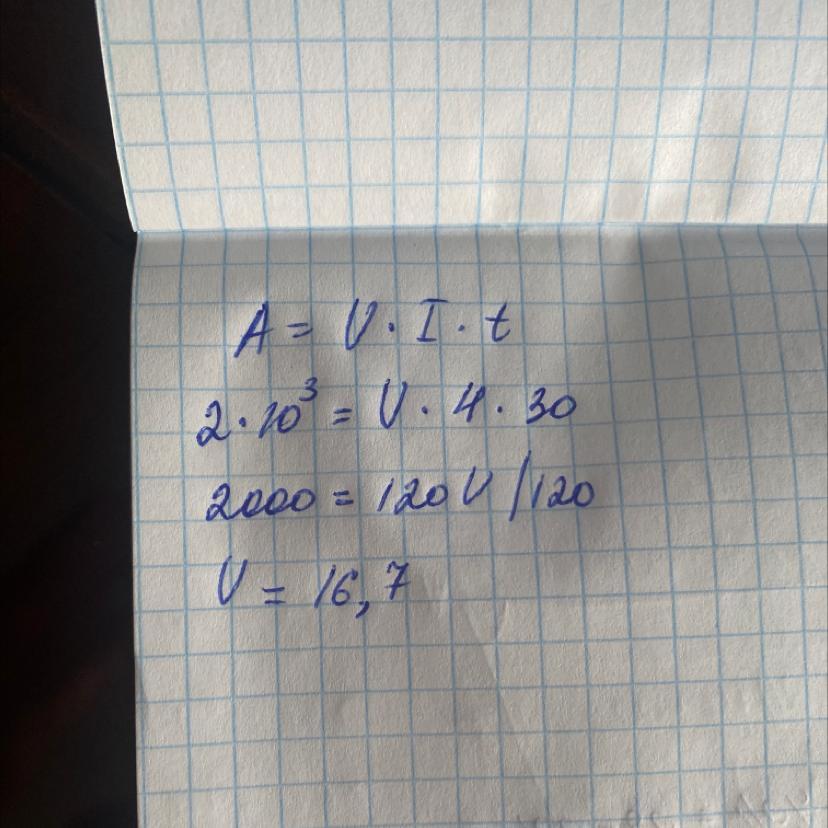 A = U · I · t
2 · 10³ = U · 4 · 30
2000 = 120 U /120
U = 16,7